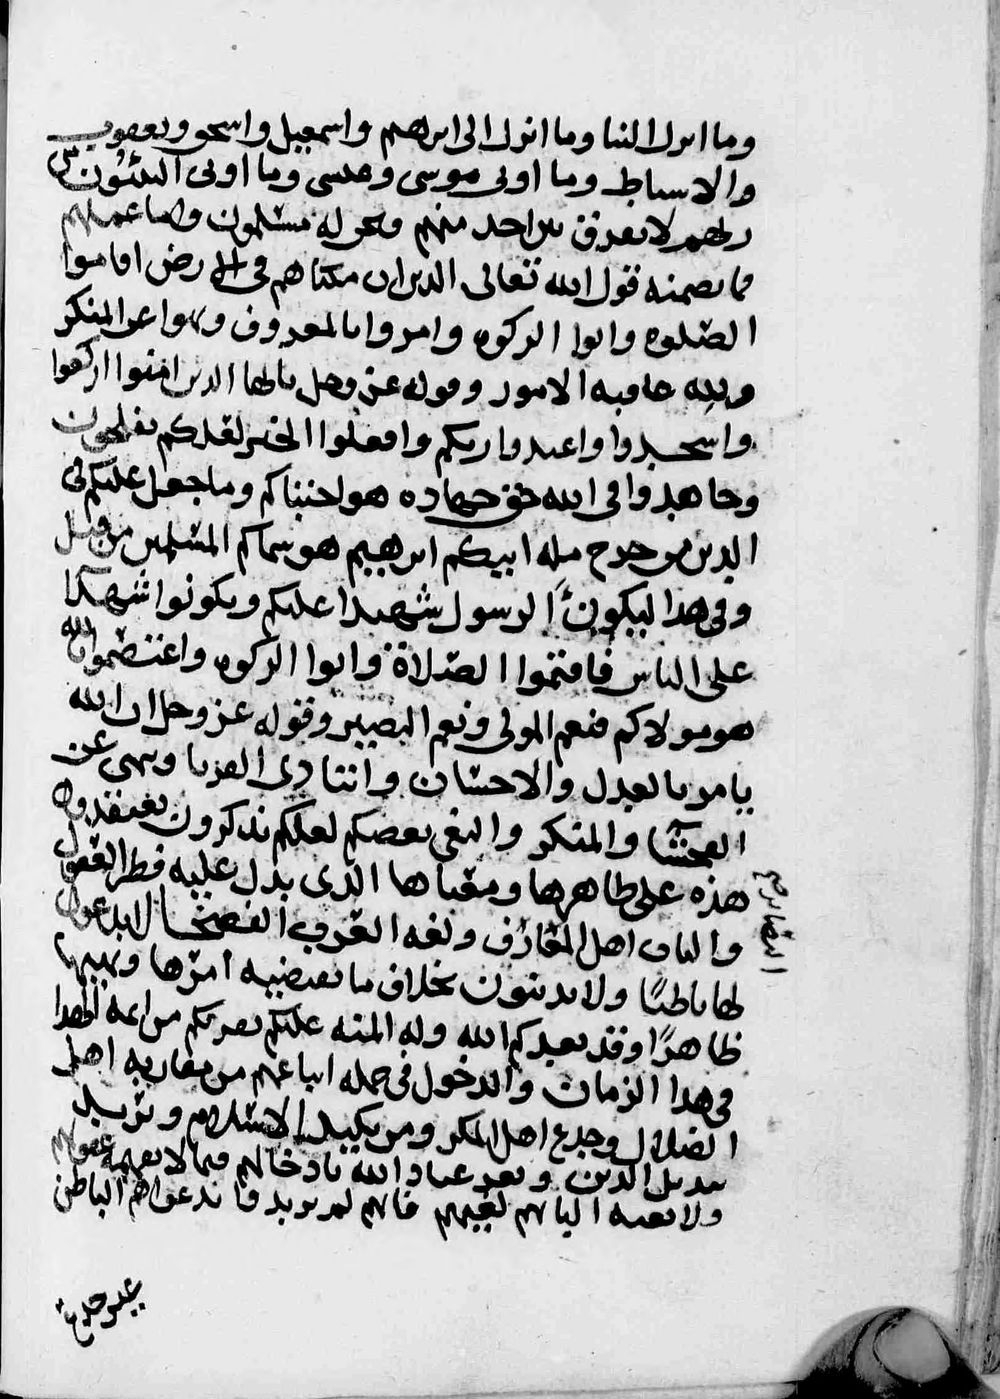 وما انزل الينا وما انزل الى ابرهيم واسمعيل واسحق ويعقوب
والاسباط وما اوتى موسى وعيسى وما اوتى النبيون من
ربهم لا نفرق بين احد منهم ونحن له مسلمون
فما تضمنه قول الله تعالى الدين ان مكناهم فى الارض اقاموا
الصلوه واتوا الزكوه وامروا بالمعروف ونهوا عن المنكر
ولله عاقبه الامور وقوله عز وجل يايها الدين امنوا اركعوا
واسجدوا واعبدوا ربكم وافعلوا الخير لعلكم تفلحون
وجاهدوا فى الله حق جهاده هو اجتباكم وما جعل عليكم فى
الدين من حرج مله ابيكم ابرهيم هو سماكم المسلمين من قبل
وفى هدا ليكون الرسول شهيدا عليكم وتكونوا شهدآ
على الناس فاقيموا الصلاة واتوا الزكوه واعتصموا بالله
هو مولاكم فنعم المولى ونعم النصير وقوله عز وجل ان الله
يامر بالعدل والاحسان وايتا دى القربا وينهى عن
الفحشآ والمنكر والبغى يعضكم لعلكم تذكرون
هذه على ظاهرها ومعناها الذى يدل عليه فطر العقول
والباب اهل المعارف ولغه العرب الفصحا لا يدعون
لها باطنًا ولا يدينون بخلاف ما يقتضيه امرها ونهيها
ظاهرًا وقد الله وله المنه عليكم من
فى هدا الزمان والدخول فى جمله اتباعهم من مقاربه اهل
الضلال وخدع اهل المكر ومن يكيد الاسلام ويريد
تبديل الدين عباد الله بادخالهم فيما لا عقولهم
ولا البابهم فانهم